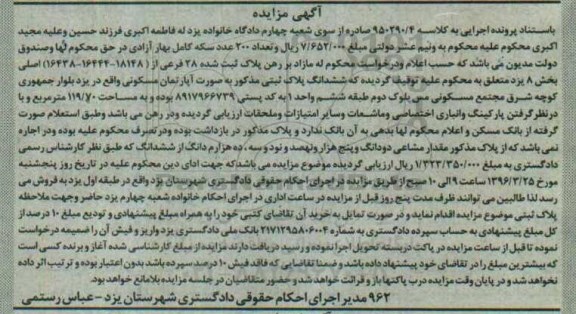 آگهی مزایده
باستناد پرونده اجرایی به کلاسه ۹۵۰۲۹۰/۴ صادره از سوی شعبه چهارم دادگاه خانواده یزد له فاطمه اکبری فرزند حسین وعلیه مجید
اکبری محکوم علیه محکوم به ونیم عشر دولتی مبلغ ۷/۶۵۲/۰۰۰ ریال وتعداد ۲۰۰ عدد سکه کامل بهار آزادی در حق محکوم لها وصندوق
دولت مدیون می باشد که حسب اعلام ودرخواست محکوم له مازاد بر رهن پلاک ثبت شده ۲۸ فرعی از (۱۸۱۴۸-۱۶۴۴۴-۱۶۴۳۸) اصلی
بخش ۸ یزد متعلق به محکوم علیه توقیف گردیده که ششدانگ پلاک ثبتی مذکور به صورت آپارتمان مسکونی واقع در یزد بلوار جمهوری
کوچه شرق مجتمع مسکونی مس بلوک دوم طبقه ششم واحد ۱ به کد پستی ۸۹۱۷۹۶۶۷۳۹ بوده و به مساحت ۱۱۹/۷۰ مترمربع و با
در نظر گرفتن پارکینگ وانباری اختصاصی ومشاعات وسایر امتیازات وملحقات ارزیابی گردیده ودر رهن می باشد وطبق استعلام صورت
گرفته از بانک مسکن و اعلام محکوم لها بدهی به آن بانک ندارد و پلاک مذکور در بازداشت بوده ودر تصرف محکوم علیه بوده ودر اجاره
نمی باشد که از پلاک مذکور مقدار مشاعی دودانگ و پنج هزار ونهصد و نود و سه، ده هزارم دانگ از ششدانگ که طبق نظر کارشناس رسمی
دادگستری به مبلغ ۱/۳۲۳/۳۵۰/۰۰۰ ریال ارزیابی گردیده موضوع مزایده می باشد که جهت ادای دین محکوم علیه در تاریخ روز پنجشنبه
مورخ ۱۳۹۶/۳/۲۵ ساعت ۹ الی ۱۰ صبح از طریق مزایده در اجرای احکام حقوقی دادگستری شهرستان یزد واقع در طبقه اول یزد به فروش می
رسد لذا طالبین می توانند ظرف مدت پنج روز قبل از مزایده در ساعت اداری در اجرای احکام خانواده شعبه چهارم یزد حاضر وجهت ملاحظه
پلاک ثبتی موضوع مزایده اقدام نماید و در صورت تمایل به خرید آن تقاضای کتبی خود را به همراه مبلغ پیشنهادی و تودیع مبلغ ۱۰ درصد از
کل مبلغ پیشنهادی به حساب سپرده دادگستری به شماره ۲۱۷۱۲۹۵۸۰۶۰۰۴ بانک ملی دادگستری یزد واریز و فیش آن را ضمیمه درخواست
نموده تا قبل از ساعت مزایده در پاکت دربسته تحویل اجرا نموده و رسید دریافت دارند مزایده از مبلغ کارشناسی شده آغاز و برنده کسی است
که بیشترین مبلغ را در تقاضای خود پیشنهاد داده باشد و ضمنا تقاضایی که فاقد فیش ۱۰ درصد سپرده باشد بدون اعتبار بوده و ترتیب اثر داده
نخواهد شد و در پایان وقت مزایده درب پاکتها باز و قرائت خواهد شد و حضور متقاضیان در جلسه مزایده بلامانع خواهد بود.
۹۶۲ مدیر اجرای احکام حقوقی دادگستری شهرستان یزد - عباس رستمی